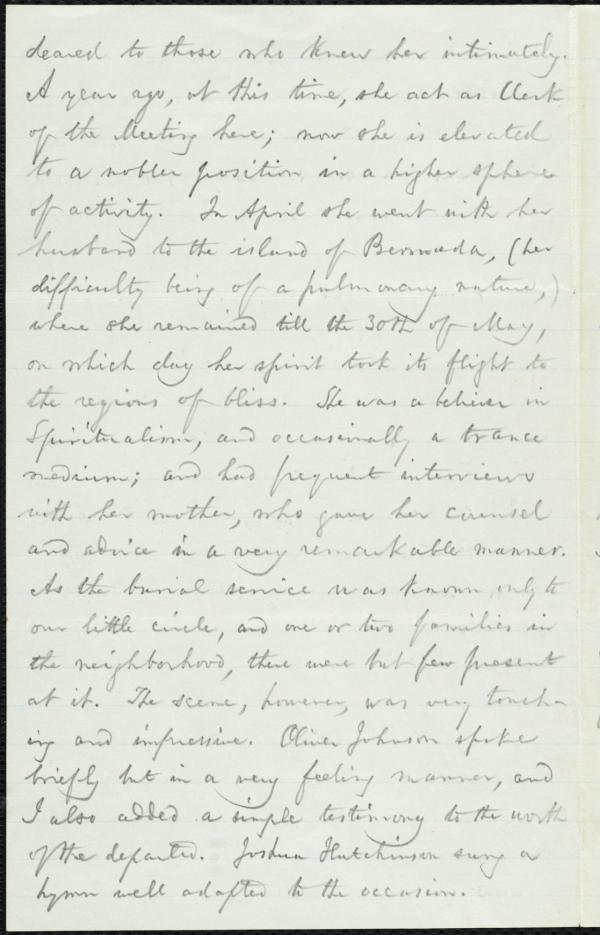 deared to those who knew her intimately.
A year ago, at this time, she act as Clerk
of the Meeting here; now she is elevated
to a nobler position in a higher sphere
of activity. In April she went with her
husband to the island of Bermuda, (her
difficulty being of a pulmonary nature,)
where she remained till the 30th of May,
on which day her spirit took its flight to
the regions of bliss. She was a believer in
Spiritualism, and occasionally a trance
medium; and had frequent interviews
with her mother, who gave her counsel
and advice in a very remarkable manner.
As the burial service was known only to
our little circle, and one or two families in
the neighborhood, there were but few present
at it. The scene, however, was very touch-
ing and impressive. Oliver Johnson spoke
briefly but in a very feeling manner, and
I also added a simple testimony to the worth
of the departed. Joshua Hutchinson sung a
hymn well adapted to the occasion.